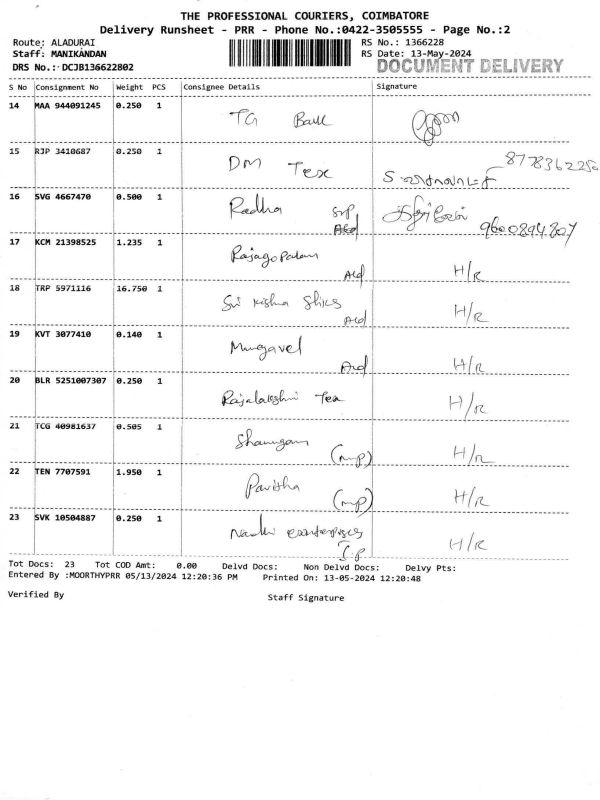 THE PROFESSIONAL COURIERS, COIMBATORE
Delivery Runsheet - PRR - Phone No.:0422-3505555 - Page No.:2
Route: ALADURAI RS No.: 1366228
Staff: MANIKANDAN RS Date: 13-May-2024
DRS No.: DCJB136622802 DOCUMENT DELIVERY
S No Consignment No Weight PCS Consignee Details Signature
14 MAA 944091245 0.250 1 TG
15 RJP 3410687 0.250 1 DM Tex
16 SVG 4667470 0.500 1 Radha
9600894207
17 KCM 21398525 1.235 1 Rajagopalan
H/R
18 TRP 5971116 16.750 1 Sri
H/R
19 KVT 3077410 0.140 1
H/R
20 BLR 5251007307 0.250 1 Rajalakshmi Tex H/R
21 TCG 40981637 0.505 1 Shanmugam
(mp) H/R
22 TEN 7707591 1.950 1 Pavitha
(mp) H/R
23 SVK 10504887 0.250 1
H/R
Tot Docs: 23 Tot COD Amt: 0.00 Delvd Docs: Non Delvd Docs: Delvy Pts:
Entered By :MOORTHYPRR 05/13/2024 12:20:36 PM Printed On: 13-05-2024 12:20:48
Verified By Staff Signature